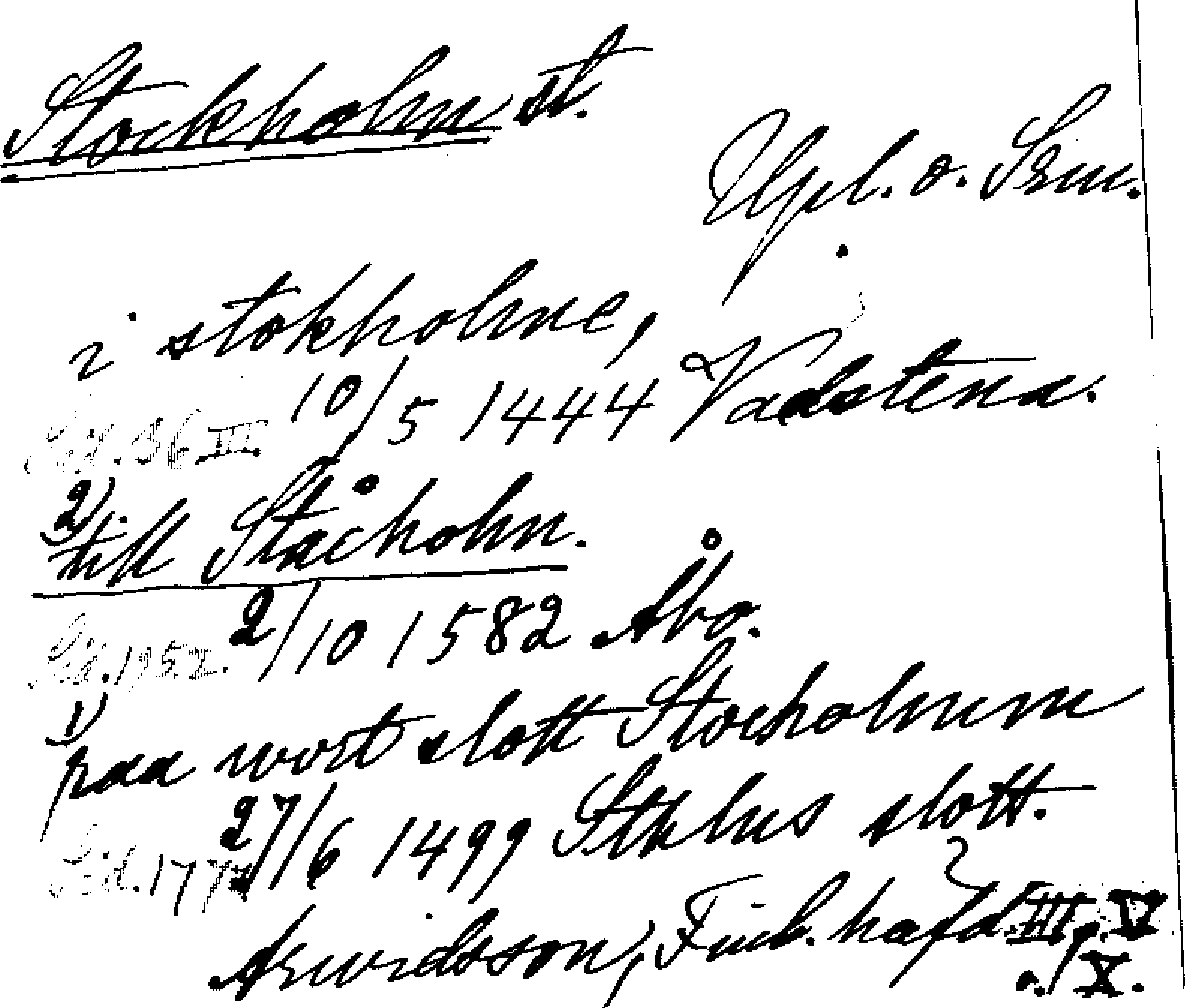 Stockholm st.
Upl. o. Srm.
i stokholme,
10/5 1444 Vadstena.
Sid. 36 III.
2)
till Ståcholm.
2/10 1582 Åbo.
Sid. 195
1)
paa wort slott Stocholmm
27/6 1499 Sthlms slott.
Sid. 177
Arwidsson, Finl. häfd. III, V
o. X.